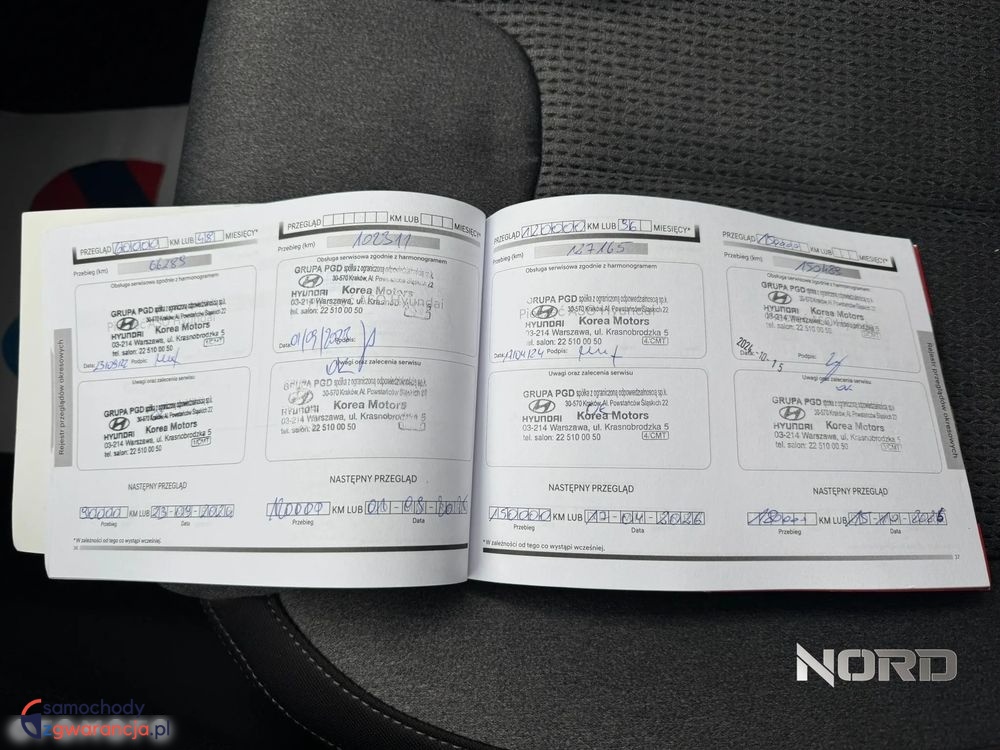 PRZEGLĄD 60000 KM LUB 48 MIESIĘCY*
Przebieg (km) 66288
Obsługa serwisowa zgodnie z harmonogramem
GRUPA PGD spółka z ograniczoną odpowiedzialnością sp.k.
30-570 Kraków, Al. Powstańców Śląskich 22
HYUNDAI Korea Motors
03-214 Warszawa, ul. Krasnobrodzka 5
tel. salon: 22 510 00 50
Data: Podpis:
Uwagi oraz zalecenia serwisu
GRUPA PGD spółka z ograniczoną odpowiedzialnością sp.k.
30-570 Kraków, Al. Powstańców Śląskich 22
HYUNDAI Korea Motors
03-214 Warszawa, ul. Krasnobrodzka 5
tel. salon: 22 510 00 50
NASTĘPNY PRZEGLĄD
90000 KM LUB
Przebieg Data
* W zależności od tego co wystąpi wcześniej.
36
Rejestr przeglądów okresowych
PRZEGLĄD KM LUB MIESIĘCY*
Przebieg (km) 102311
Obsługa serwisowa zgodnie z harmonogramem
GRUPA PGD spółka z ograniczoną odpowiedzialnością sp.k.
30-570 Kraków, Al. Powstańców Śląskich 22
HYUNDAI Korea Motors
03-214 Warszawa, ul. Krasnobrodzka 5
tel. salon: 22 510 00 50
Data: 01/09/2023 Podpis:
Uwagi oraz zalecenia serwisu
GRUPA PGD spółka z ograniczoną odpowiedzialnością sp.k.
30-570 Kraków, Al. Powstańców Śląskich 22
Korea Motors
03-214 Warszawa, ul. Krasnobrodzka 5
tel. salon: 22 510 00 50
NASTĘPNY PRZEGLĄD
KM LUB
Przebieg Data
PRZEGLĄD 120000 KM LUB 96 MIESIĘCY*
Przebieg (km) 127165
Obsługa serwisowa zgodnie z harmonogramem
GRUPA PGD spółka z ograniczoną odpowiedzialnością sp.k.
30-570 Kraków, Al. Powstańców Śląskich 22
HYUNDAI Korea Motors
03-214 Warszawa, ul. Krasnobrodzka 5
tel. salon: 22 510 00 50 4/CMT
Data: 17/04/24 Podpis:
Uwagi oraz zalecenia serwisu
GRUPA PGD spółka z ograniczoną odpowiedzialnością sp.k.
30-570 Kraków, Al. Powstańców Śląskich 22
HYUNDAI Korea Motors
03-214 Warszawa, ul. Krasnobrodzka 5
tel. salon: 22 510 00 50 4/CMT
NASTĘPNY PRZEGLĄD
150000 KM LUB 17-04-2026
Przebieg Data
* W zależności od tego co wystąpi wcześniej.
PRZEGLĄD KM LUB MIESIĘCY*
Przebieg (km) 150488
Obsługa serwisowa zgodnie z harmonogramem
GRUPA PGD spółka z ograniczoną odpowiedzialnością sp.k.
30-570 Kraków, Al. Powstańców Śląskich 22
HYUNDAI Korea Motors
03-214 Warszawa, ul. Krasnobrodzka 5
tel. salon: 22 510 00 50
2024 -10- 15
Data: Podpis:
Uwagi oraz zalecenia serwisu
ok
GRUPA PGD spółka z ograniczoną odpowiedzialnością sp.k.
30-570 Kraków, Al. Powstańców Śląskich 22
HYUNDAI Korea Motors
03-214 Warszawa, ul. Krasnobrodzka 5
tel. salon: 22 510 00 50 1/CMT
NASTĘPNY PRZEGLĄD
KM LUB 15-10-2026
Przebieg Data
37
Rejestr przeglądów okresowych
NORD
samochody
zgwarancja.pl